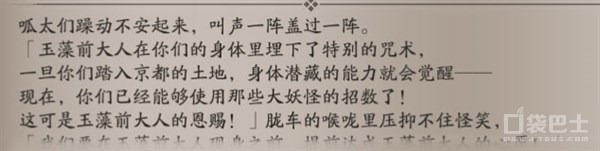 呱太们躁动不安起来，叫声一阵盖过一阵。
「玉藻前大人在你们的身体里埋下了特别的咒术，
一旦你们踏入京都的土地，身体潜藏的能力就会觉醒——
现在，你们已经能够使用那些大妖怪的招数了！
这可是玉藻前大人的恩赐！」胧车的喉咙里压抑不住怪笑，
口袋巴士